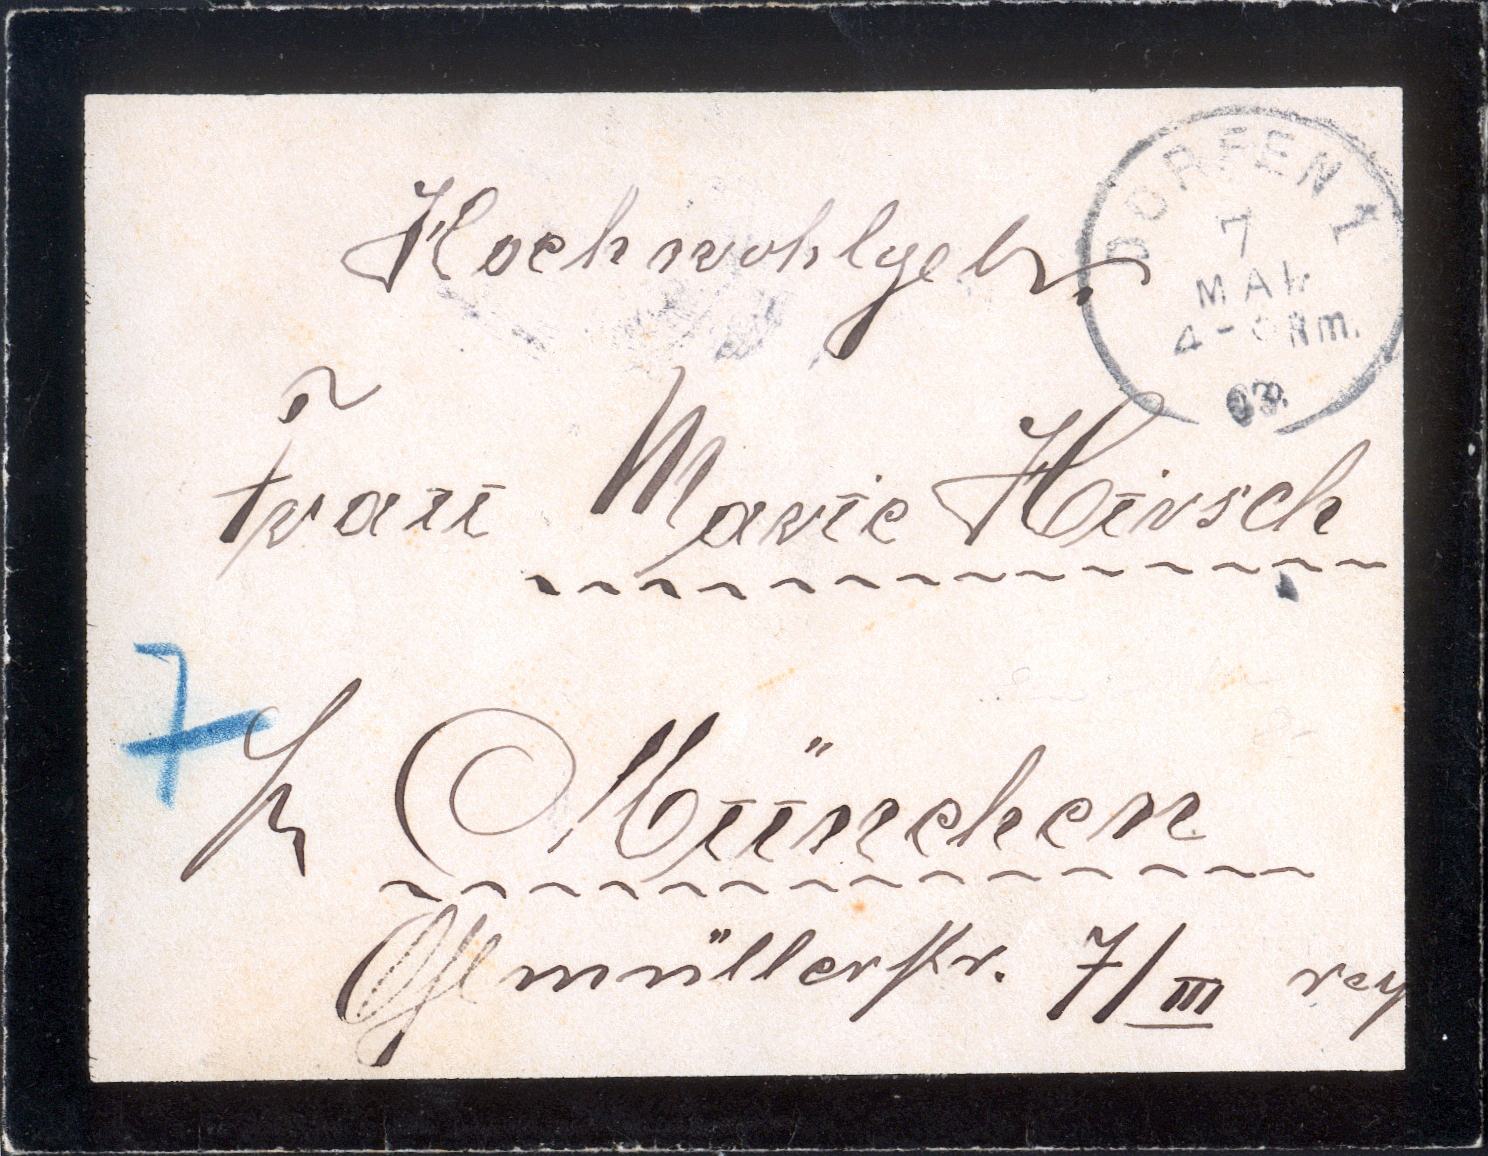 DORFEN 1
7
MAI
4-5 Nm.
03.
Hochwohlgeb.
Frau Marie Hirsch
7
München
Ohlmüllerstr. 7/III